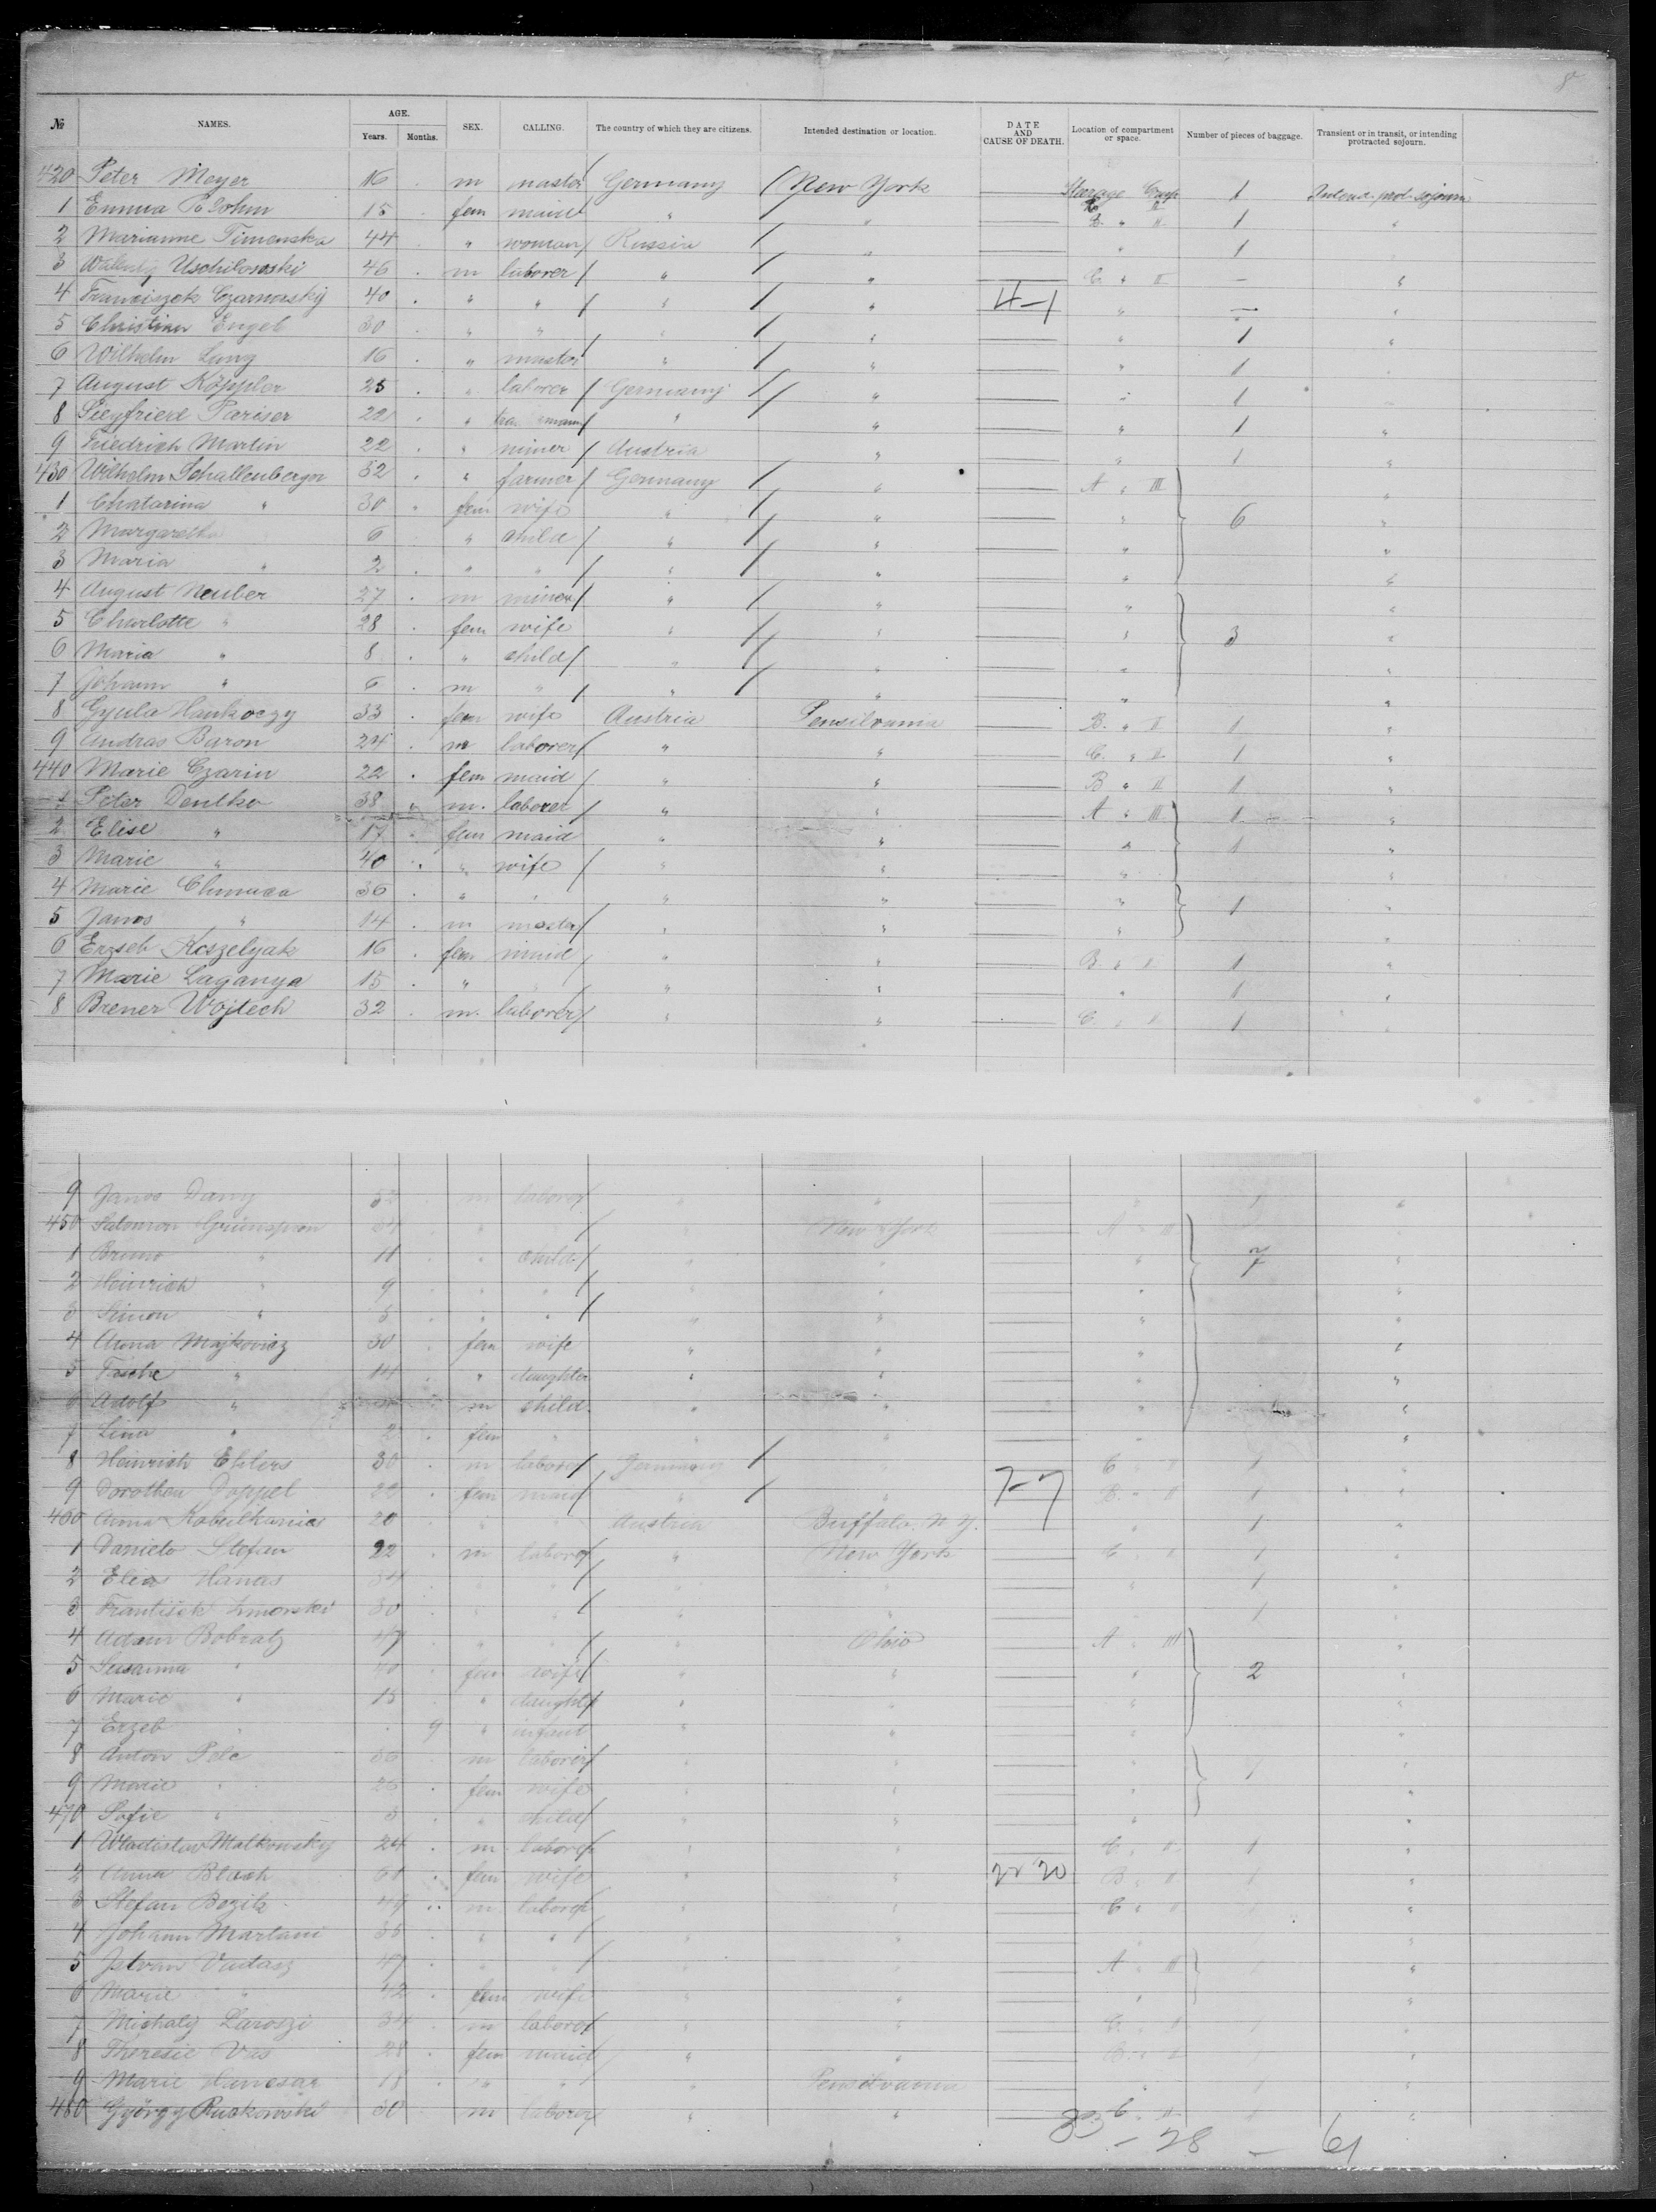 8
№ NAMES. AGE. Years. Months. SEX. CALLING. The country of which they are citizens. Intended destination or location. DATE AND CAUSE OF DEATH. Location of compartment or space. Number of pieces of baggage. Transient or in transit, or intending protracted sojourn.
420 Peter Meyer 16 . m master Germany New York Steerage Comp 1 Intend. prot. sojourn
1 Emma 15 . fem maid " " " II 1 "
2 Marianne Timenska 44 " woman Russia " " 1
3 Uschilowski 46 . m laborer " " C. " II — "
4 Franciszek Czarnaskij 40 . " " " " 4-1 " — "
5 Christian Engel 30 . " " " " " 1 "
6 Wilhelm Lang 16 . " master " " " 1
7 August Köppler 25 . " laborer Germany " " 1
8 Siegfried Pariser 22 . " " " " 1 "
9 Friedrich Martin 22 . " miner Austria " " 1 "
430 Wilhelm Schallenberger 32 . " farmer Germany " A " III "
1 Chatarina " 30 " fem wife " " " 6 "
2 Margaretha " 6 " child " " " "
3 Maria " 2 . " " " " " "
4 August Neuber 27 . m miner " " " "
5 Charlotte " 28 . fem wife " " " 3 "
6 Maria " 8 . " child " " " "
7 Johann " 6 . m " " " " "
8 Gyula Hankoczy 33 . fem wife Austria Pensilvania B. " II 1 "
9 Andras Baron 24 . m laborer " " C. " II 1 "
440 Marie Czarin 22 . fem maid " " B " II 1 "
1 Peter Denlko 38 " m. laborer " " A " III 1 "
2 Elise " 17 . fem maid " " " 1 "
3 Marie " 40 . " wife " " " "
4 Marie 36 . " " " " " 1 "
5 Janos " 14 . m master " " " "
6 Erzseb Koszelyak 16 . fem maid " " B. " II 1 "
7 Marie Laganya 15 . " " " " " 1 "
8 Brener Wojtech 32 . m. laborer " " C. " II 1 "
9 Janos Dany 52 . m laborer " " " 1 "
450 Salomon Grünspan 34 . " " New York A " III
1 Bruno " 11 . " child " " " 7 "
2 Heinrich " 9 . " " " " " "
3 Simon " 5 . " " " " " "
4 Anna Majkovicz 30 . fem wife " " " "
5 " 14 . " daughter " " " "
6 Adolf " m child " " " "
7 Lina " 2 . fem " " " " "
8 Heinrich Ehlers 30 . m laborer Germany " C " II 1 "
9 Dorothea Doppel 22 . fem maid " " 7-7 " II 1 "
460 Anna 20 " " Austria Buffalo. N. Y. " 1 "
1 Danielo Stefan 22 . m laborer " New York C. " II 1 "
2 Elia Hanas 34 . " " " " " 1 "
3 František 30 . " " " " 1 "
4 Adam Bobratz 47 . " " " Ohio A " III "
5 Susanna " 40 . fem wife " " " 2 "
6 Marie " 15 . " daughter " " " "
7 Erzeb " . 9 " infant " " " "
8 Anton Pele 36 . m laborer " " " "
9 Marie " 26 . fem wife " " " 1 "
470 Sofie " 3 . " child " " " "
1 Wladislaw Malkowsky 24 . m laborer " " C. " II 1 "
2 Anna 61 . fem wife " " 20 B " II 1 "
3 Stefan Bozik 44 . m laborer " " C " II "
4 Johann Martani 35 . " " " " "
5 Istvan Vadasz 47 . " " " " A " III "
6 Marie " 42 . fem wife " " " "
7 Michaly 34 . m laborer " " C. " II "
8 Theresie Vas 28 . fem maid " " B. " II "
9 Marie 18 . " " " Pensilvania " 1 "
480 György 30 m laborer " " C " II 1 "
33 – 28 – 61